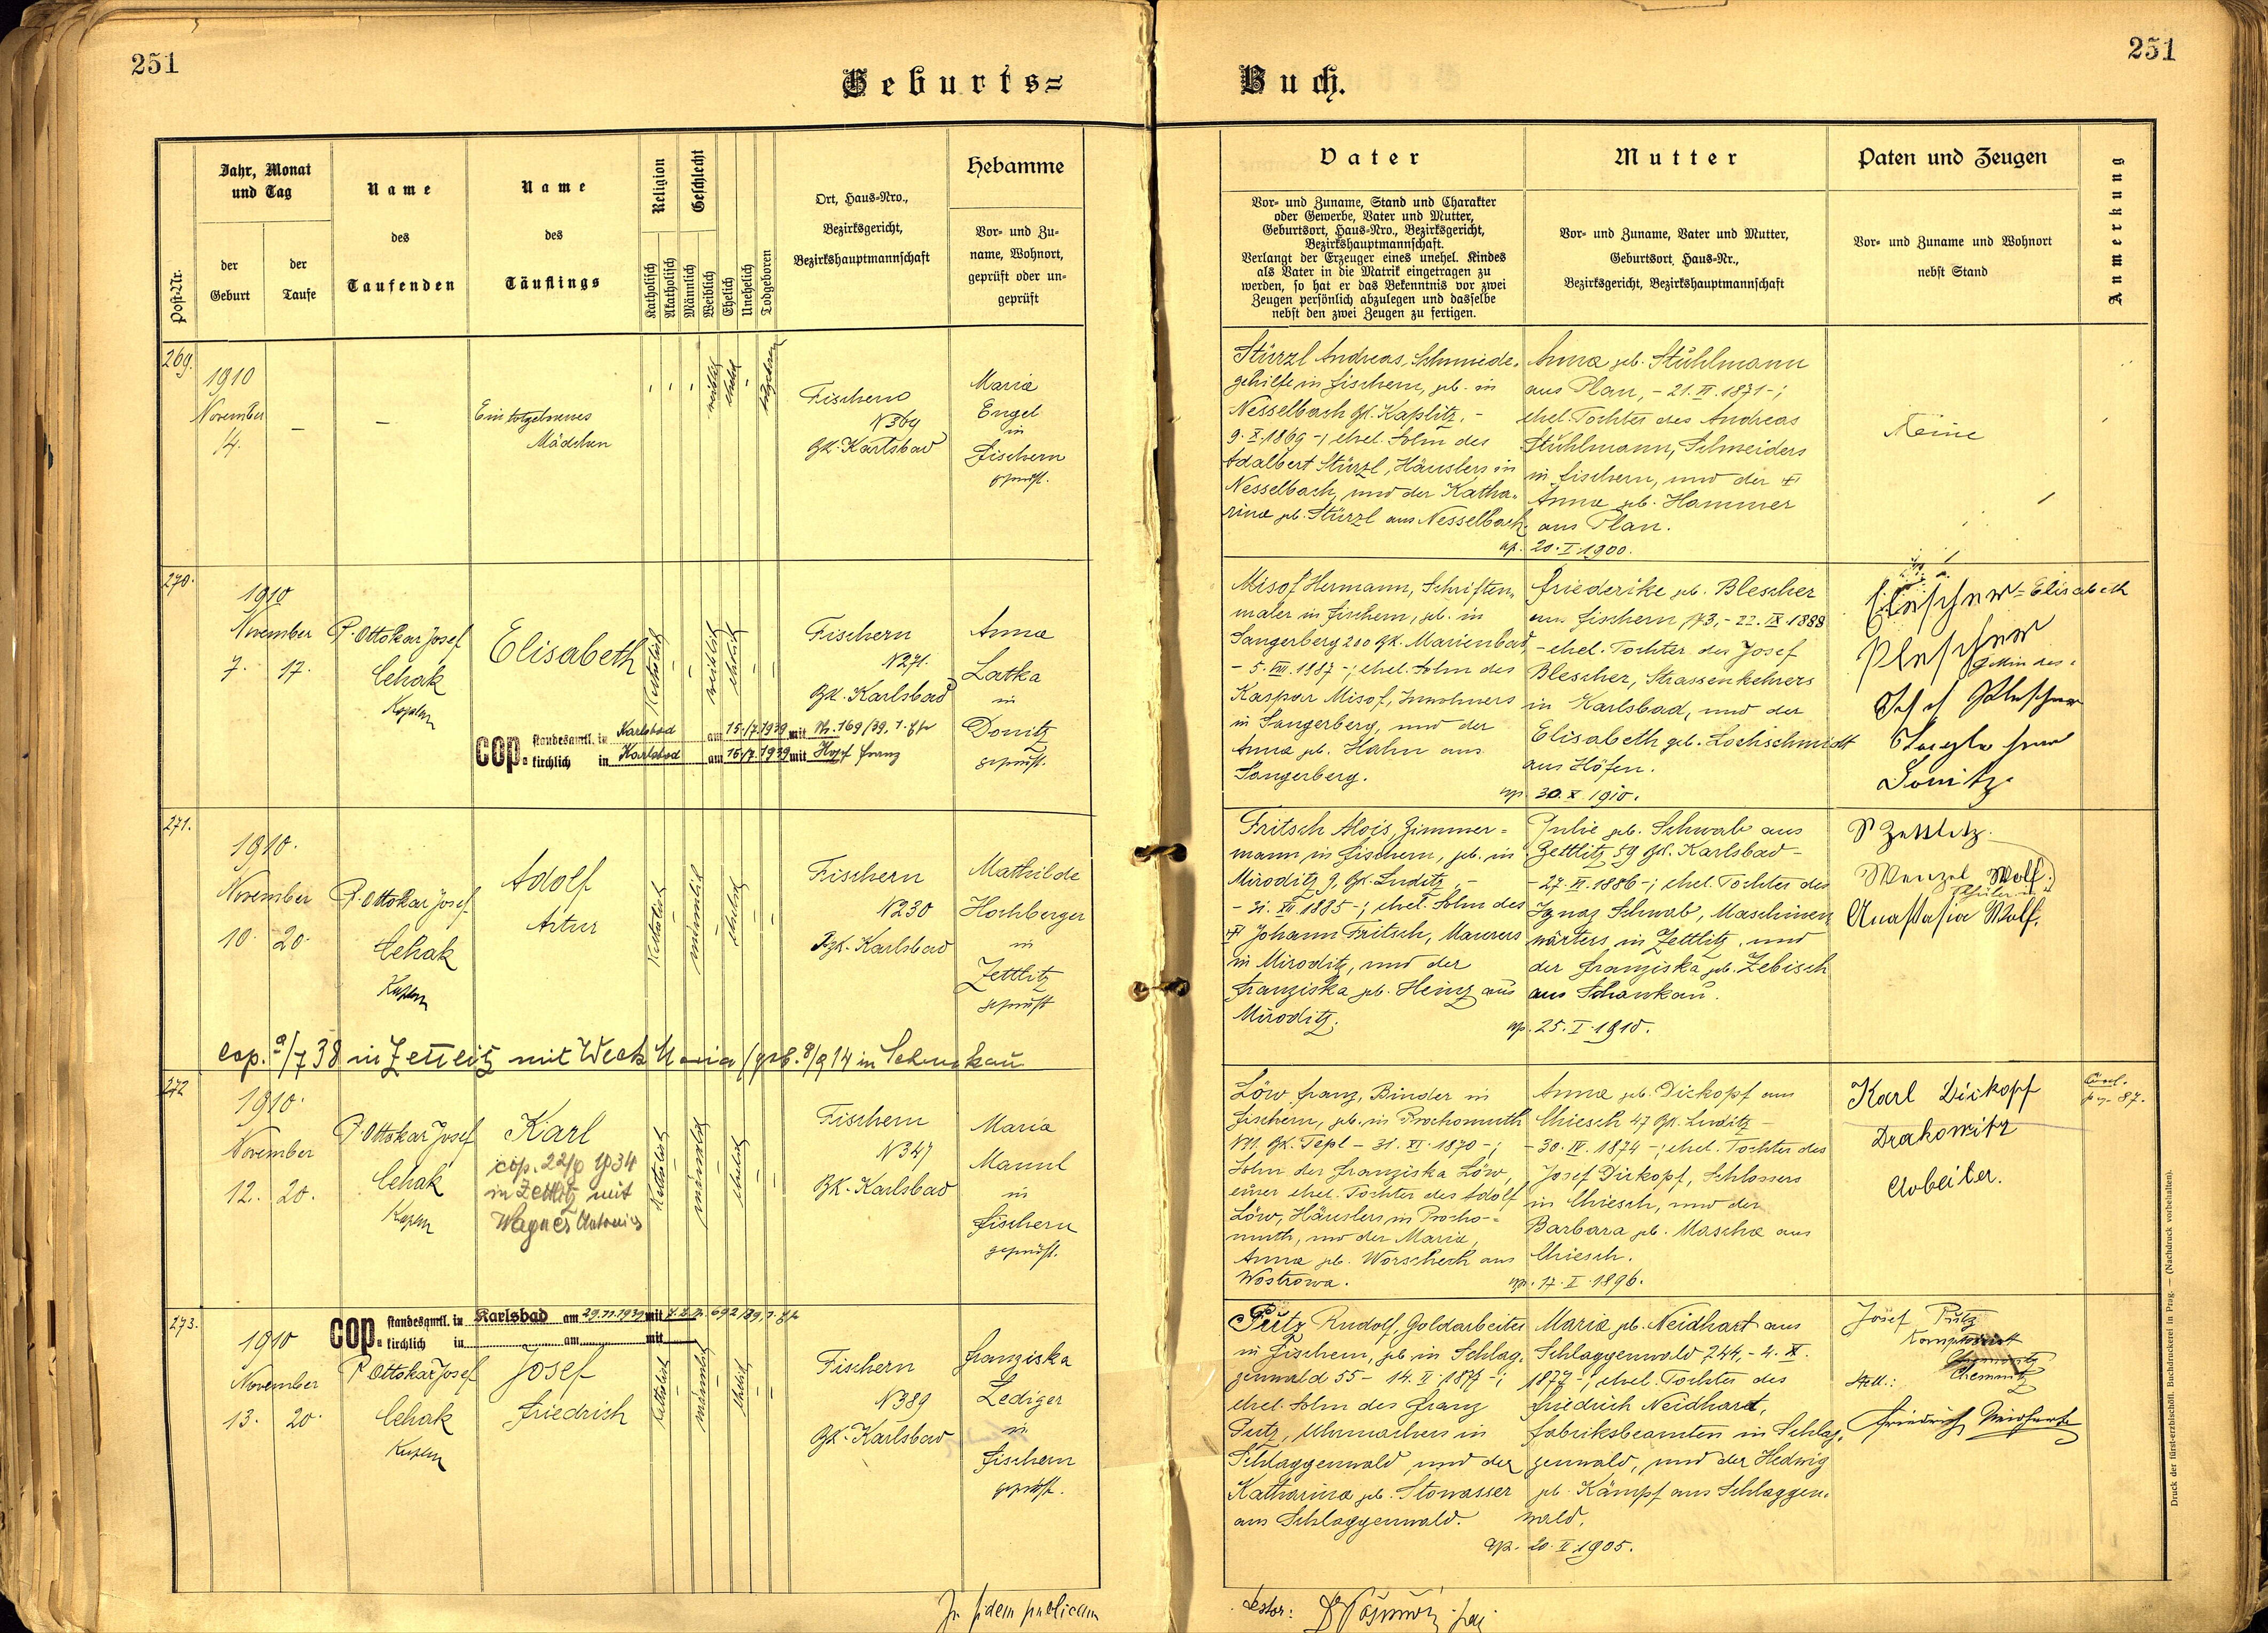 251
251
Geburts=
Buch.
Post-Nr.
Jahr, Monat
und Tag
der
Geburt
der
Taufe
Name
des
Taufenden
Name
des
Täuflings
Religion
Katholisch
Akatholisch
Geschlecht
Männlich
Weiblich
Ehelich
Unehelich
Todgeboren
Ort, Haus-Nro.,
Bezirksgericht,
Bezirkshauptmannschaft
Hebamme
Vor- und Zu-
name, Wohnort,
geprüft oder un-
geprüft
Vater
Vor- und Zuname, Stand und Charakter
oder Gewerbe, Vater und Mutter,
Geburtsort, Haus-Nro., Bezirksgericht,
Bezirkshauptmannschaft.
Verlangt der Erzeuger eines unehel. Kindes
als Vater in die Matrik eingetragen zu
werden, so hat er das Bekenntnis vor zwei
Zeugen persönlich abzulegen und dasselbe
nebst den zwei Zeugen zu fertigen.
Mutter
Vor- und Zuname, Vater und Mutter,
Geburtsort, Haus-Nr.,
Bezirksgericht, Bezirkshauptmannschaft
Paten und Zeugen
Vor- und Zuname und Wohnort
nebst Stand
Anmerkung
269.
1910
November
14.
–
–
Ein totgeborenes
Mädchen
weiblich
ehelich
totgeboren
Fischern
N 364
Gk. Karlsbad
Maria
Engel
in
Fischern
geprüft.
Stürzl Andreas, Schmiede-
gehilfe in Fischern, geb. in
Nesselbach Gk. Kaplitz, -
9. X. 1869 -; ehel. Sohn des
Adalbert Stürzl, Häuslers in
Nesselbach, und der Katha-
rina geb. Stürzl aus Nesselbach.
Anna geb. Stühlmann
aus Plan, - 21. II. 1871 -;
ehel. Tochter des Andreas
Stühlmann, Schneiders
in Fischern, und der
Anna geb. Hammer
aus Plan.
cop. 20. I. 1900.
Keine
270.
1910
November
7. 17.
P. Ottokar Josef
Cehak
Kaplan
Elisabeth
Katholisch
weiblich
ehelich
Fischern
N 271.
Gk. Karlsbad
Anna
Latka
in
Donitz
geprüft.
cop. standesamtl. in Karlsbad am 15./7. 1939 mit Nr. 169/39,
kirchlich in Karlsbad am 15/7. 1939 mit Hopf Franz
Misof Hermann, Schriften-
maler in Fischern, geb. in
Sangerberg 200 Gk. Marienbad,
- 5. VIII. 1887 -; ehel. Sohn des
Kaspar Misof, Inwohners
in Sangerberg, und der
Anna geb. Hahn aus
Sangerberg.
Friederike geb. Blescher
aus Fischern 173, - 22. IX. 1888
- ehel. Tochter des Josef
Blescher, Strassenkehrers
in Karlsbad, und der
Elisabeth geb. Lochschmidt
aus Höfen.
cop. 30. X. 1910.
Elisabeth
Donitz
271.
1910.
November
10. 20.
P. Ottokar Josef
Cehak
Kaplan
Adolf
Artur
Katholisch
männlich
ehelich
Fischern
N 230
Gk. Karlsbad
Mathilde
Hochberger
in
Zettlitz
geprüft
Fritsch Alois, Zimmer=
mann in Fischern, geb. in
Miroditz 9, Gk. Luditz, -
- 31. XII. 1885 -; ehel. Sohn des
Johann Fritsch, Maurers
in Miroditz, und der
Franziska geb. Heinz aus
Miroditz.
Julie geb. Schwab aus
Zettlitz 59 Gk. Karlsbad -
- 27. II. 1886 -; ehel. Tochter des
Ignaz Schwab, Maschinen-
wärters in Zettlitz, und
der Franziska geb. Zebisch
aus Schankau.
cop. 25. I. 1910.
Zettlitz
Wenzel Wolf.
Anastasia Wolf.
cop. 9/7 38 in Zettlitz mit Weck Maria (geb. 8/9 14 in Schankau
272
1910.
November
12. 20.
P. Ottokar Josef
Cehak
Kaplan
Karl
cop. 22/9 1934
in Zettlitz mit
Wagner Antonia
Katholisch
männlich
ehelich
Fischern
N 347
Gk. Karlsbad
Maria
Mannl
in
Fischern
geprüft.
Löw Franz, Binder in
Fischern, geb. in Prochomuth
N 11. Gk. Tepl - 31. XI. 1870 -;
Sohn der Franziska Löw,
einer ehel. Tochter des Adolf
Löw, Häuslers in Procho-=
muth, und der Maria
Anna geb. Worscheck aus
Wostrowa.
Anna geb. Dickopf aus
Chiesch 47 Gk. Luditz -
- 30. IV. 1874 -; ehel. Tochter des
Josef Dickopf, Schlossers
in Chiesch, und der
Barbara geb. Mascha aus
Chiesch.
cop. 17. I. 1896.
Karl Dickopf
Drahowitz
Arbeiter.
pag. 87.
273.
cop. standesamtl. in Karlsbad am 29.11.1939 mit 692/39,
kirchlich in am mit
1910
November
13. 20.
P. Ottokar Josef
Cehak
Kaplan
Josef
Friedrich
Katholisch
männlich
ehelich
Fischern
N 389
Gk. Karlsbad
Franziska
Lediger
in
Fischern
geprüft.
Putz Rudolf, Goldarbeiter
in Fischern, geb. in Schlag-
genwald 55 - 14. II. 1875 -;
ehel. Sohn des Franz
Putz, Uhrmachers in
Schlaggenwald, und der
Katharina geb. Stowasser
aus Schlaggenwald.
Maria geb. Neidhart aus
Schlaggenwald 244, - 4. XI.
1877 -; ehel. Tochter des
Friedrich Neidhart,
Fabriksbeamten in Schlag-
genwald, und der Hedwig
geb. Kämpf aus Schlaggen-
wald.
cop. 20. II. 1905.
Josef Putz
Chemnitz
Stell.:
Friedrich Neidhart
In fidem publicam
Druck der fürst-erzbischöfl. Buchdruckerei in Prag. — (Nachdruck vorbehalten).